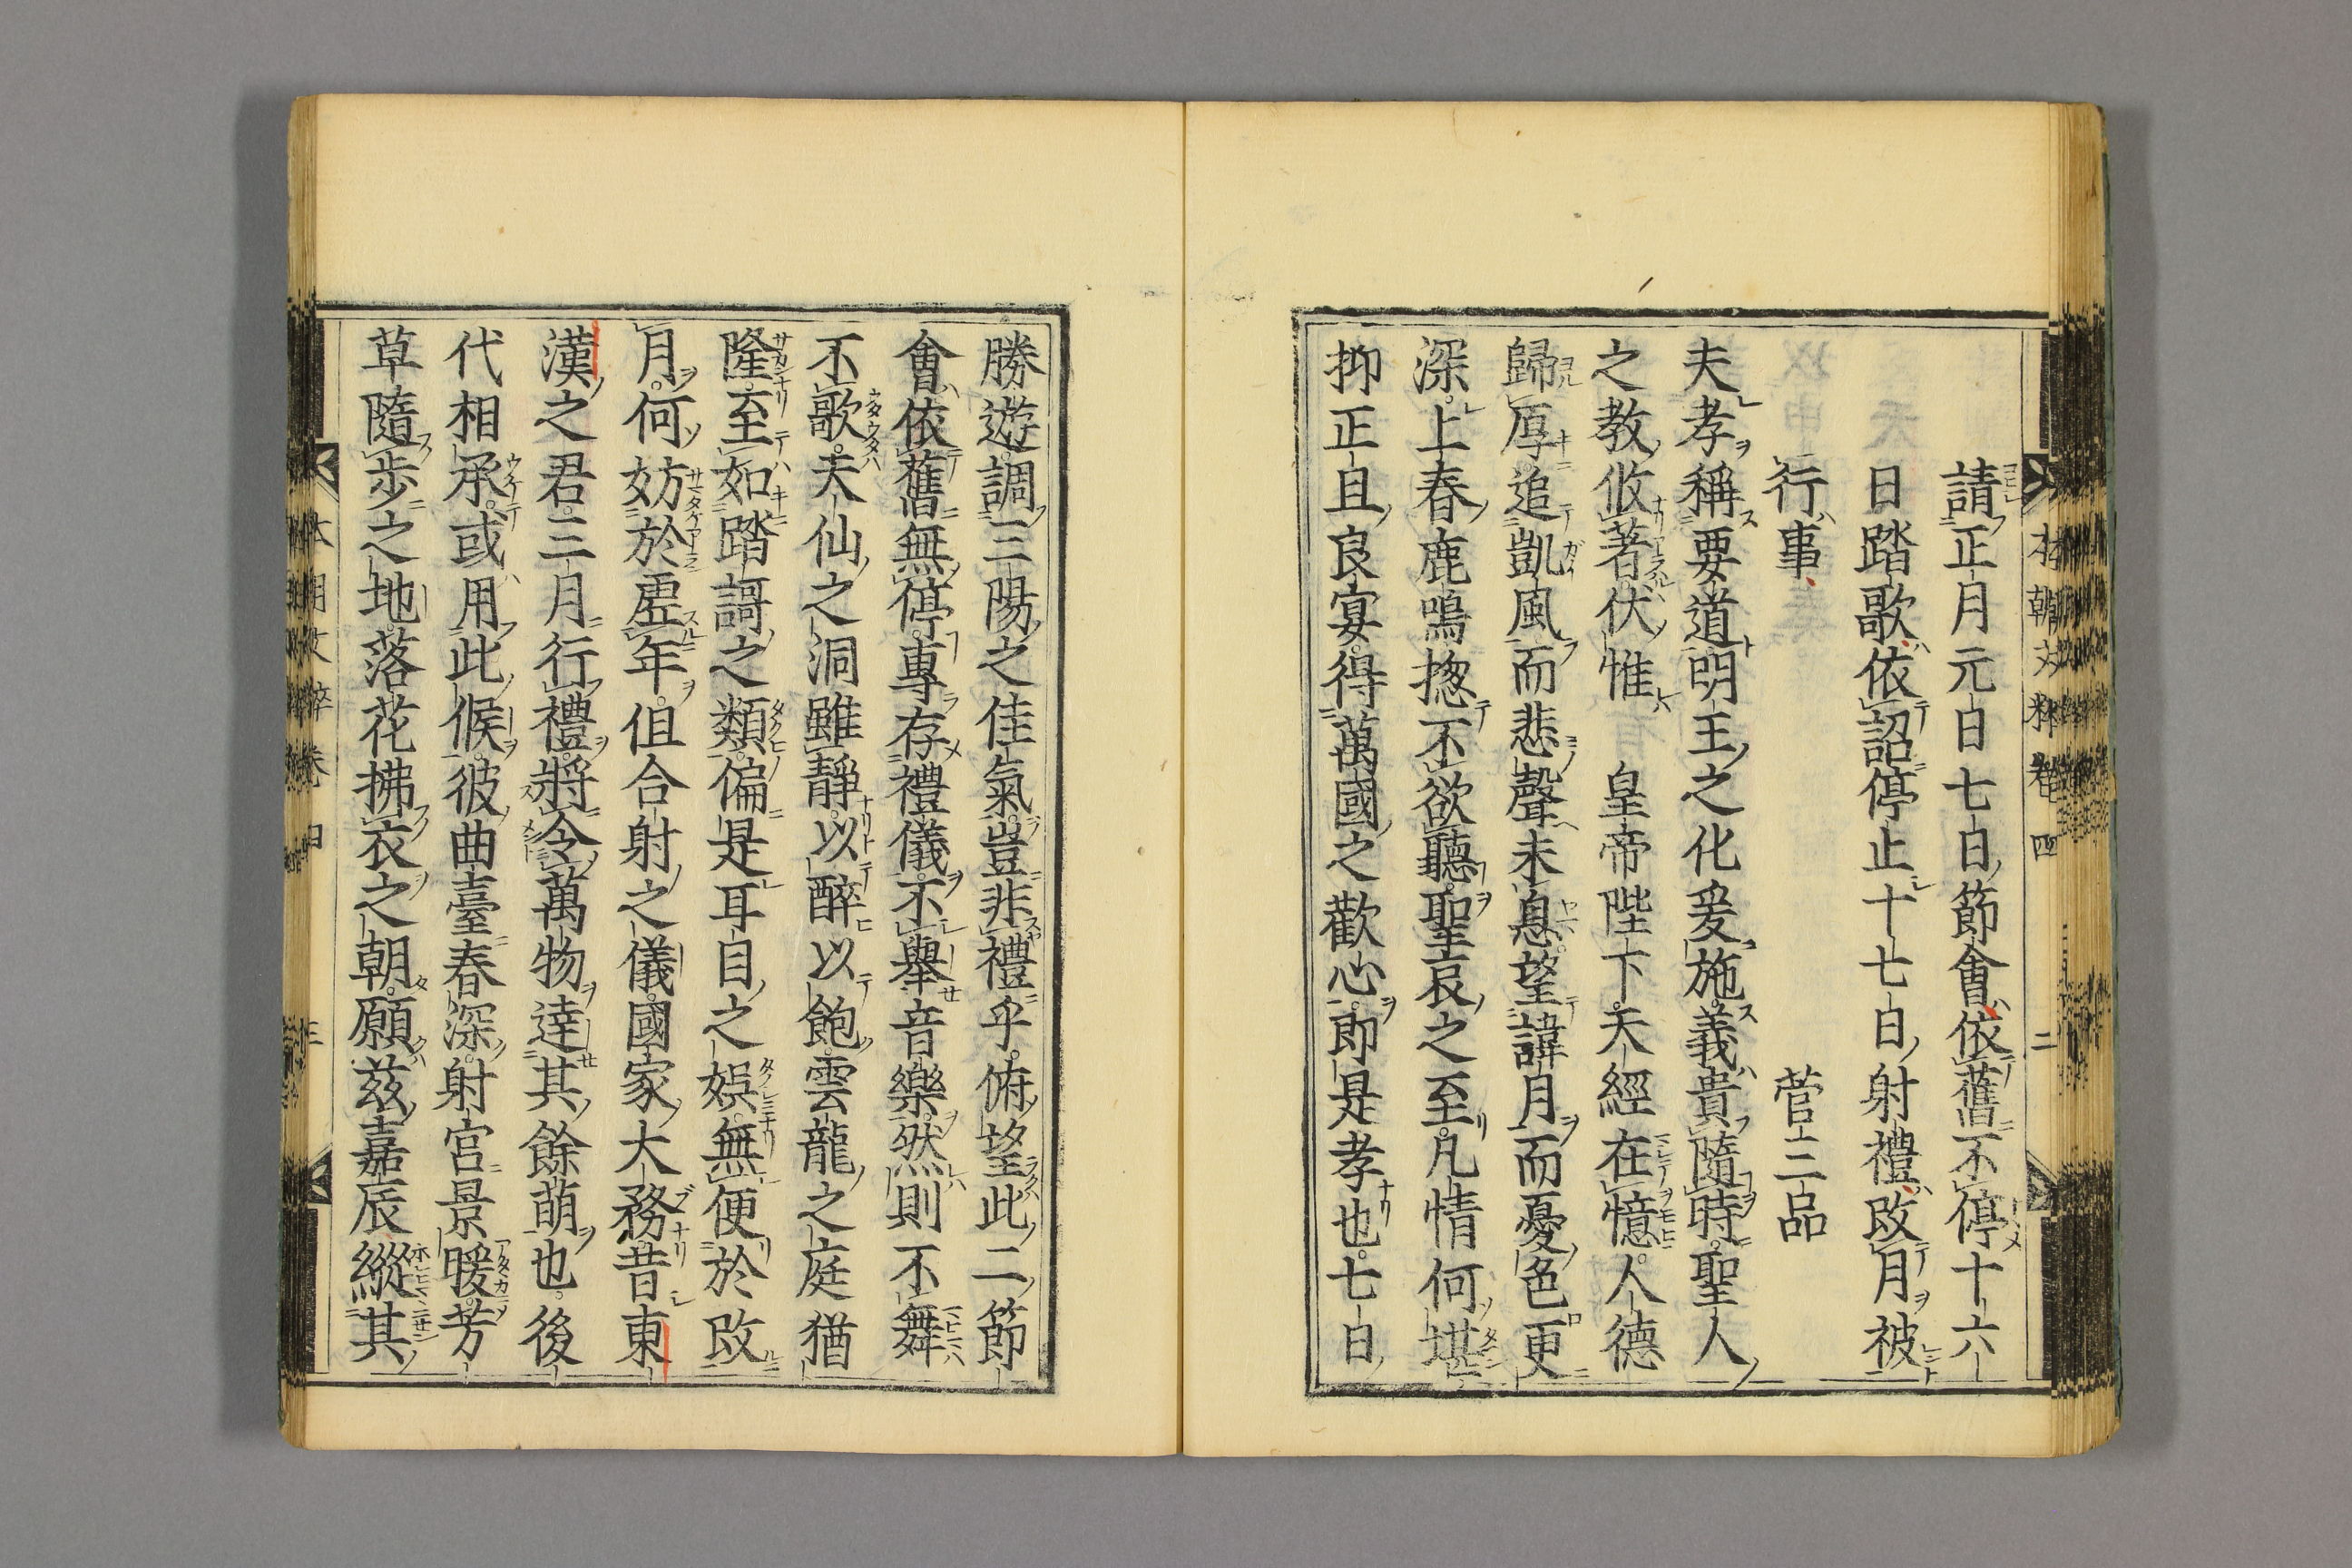 請正月元日七日節會依舊不停十六
日踏歌依詔停止十七日射禮改月被
行事　菅三品
夫孝稱要道明王之化爰施義貴隨時聖人
之教攸著伏惟　皇帝陛下天經在憶人德
歸厚追凱風而悲聲未息望諱月而憂色更
深上春鹿鳴揔不欲聽聖哀之至凡情何堪
抑正旦良宴得萬國之歡心卽是孝也七日
勝遊調三陽之佳氣豈非禮乎俯望此二節
會依舊無停專存禮儀不舉音樂然則不舞
不歌天仙之洞雖靜以醉以飽雲龍之庭猶
隆至如踏謌之類偏是耳目之娛無便於改
月何妨於虛年但合射之儀國家大務昔東
漢之君三月行禮將令萬物達其餘萌也後
代相承或用此候彼曲臺春深射宮景暖芳
草隨步之地落花拂衣之朝願茲嘉辰縱其
本朝文粹卷四　二
本朝文粹卷四　三